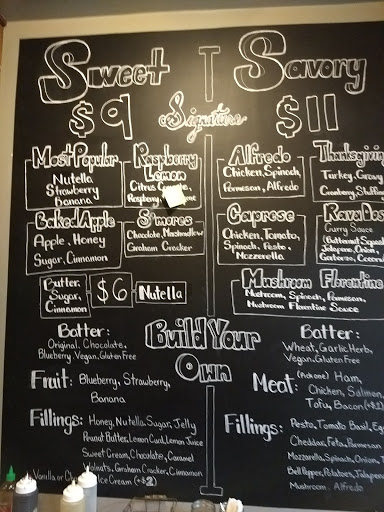 Sweet
$9
Signature
Savory
$11
Most Popular
Nutella
Strawberry
Banana
Raspberry
Lemon
Citrus
Raspberry
Baked Apple
Apple, Honey
Sugar, Cinnamon
S'mores
Chocolate, Marshmallow
Graham Cracker
Butter,
Sugar,
Cinnamon
$6
Nutella
Alfredo
Chicken, Spinach,
Parmesan, Alfredo
Thanksgiving
Turkey, Gravy
Cranberry, Stuffing
Caprese
Chicken, Tomato,
Spinach, Pesto,
Mozzerella
Curry Sauce
Butternut Squash
Jalapeno, Onion,
Mushroom Florentine
Mushroom, Spinach, Parmesan,
Mushroom Florentine Sauce
Build Your
Own
Batter:
Original, Chocolate,
Blueberry, Vegan, Gluten Free
Fruit: Blueberry, Strawberry,
Banana
Fillings: Honey, Nutella, Sugar, Jelly
Peanut Butter, Lemon Curd, Lemon Juice
Sweet Cream, Chocolate, Caramel
Walnuts, Graham Cracker, Cinnamon
Vanilla or Ice Cream (+$2)
Batter:
Wheat, Garlic Herb,
Vegan, Gluten Free
Meat: (Pick one) Ham,
Chicken, Salmon,
Tofu, Bacon (+$2)
Fillings: Pesto, Tomato, Basil, Egg
Cheddar, Feta, Parmesan
Mozzarella, Spinach, Onion,
Bell Pepper, Potatoes, Jalapeno
Mushroom, Alfredo